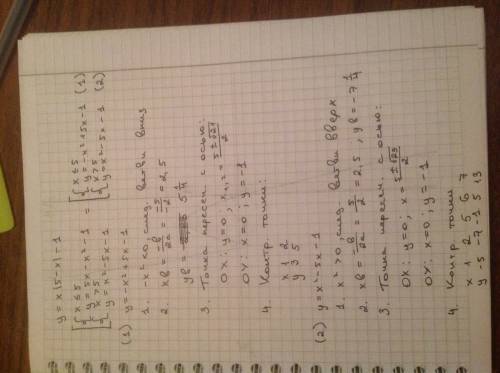 y = x|5-x| - 1
[ { x ≤ 5
y = 5x - x² - 1 = [ { x ≤ 5
y = -x² + 5x - 1 (1)
{ x > 5
y = x² - 5x - 1 { x > 5
y = x² - 5x - 1 (2)
(1) y = -x² + 5x - 1
1. -x² < 0, след. ветви вниз
2. xв = -в/2a = -5/-2 = 2,5
yв = 5 1/4
3. Точка пересеч. с осью:
OX: y=0; x₁,₂ = 5±√21/2
OY: x=0; y=-1
4. Контр. точки:
x 1 2
y 3 5
(2) y = x² - 5x - 1
1. x² > 0 след. ветви вверх
2. xв = -в/2a = 5/2 = 2,5; yв = -7 1/4
3. Точка пересеч. с осью:
OX: y=0; x = 5±√29/2
OY: x=0; y=-1
4. Контр. точки
x 1 2 5 6 7
y -5 -7 -1 5 13